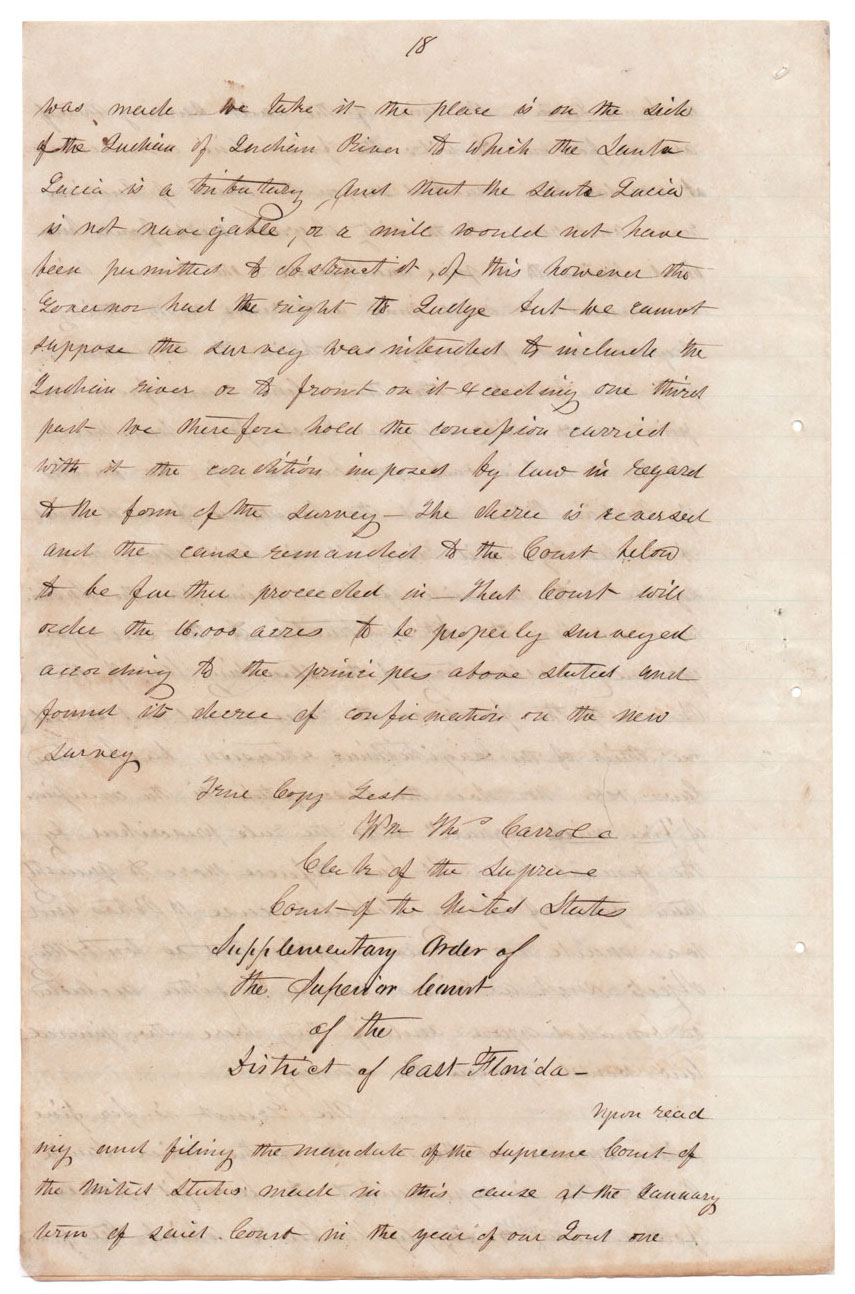 18
was made we take it the place is on the side
of the Indian of Indian River to which the Santa
Lucia is a tributary, And that the Santa Lucia
is not navigable, or a mill would not have
been permitted to obstruct it, of this however the
Governor had the right to Judge but we cannot
suppose the survey was intended to include the
Indian river or to front on it exceeding one third
part we therefore hold the concession carried
with it the condition imposed by law in regard
to the form of the survey — The decree is reversed
and the cause remanded to the Court below
to be further proceeded in — That Court will
order the 16.000 acres to be properly surveyed
according to the principles above stated and
found its decree of confirmation on the new
survey
True Copy Test
Wm Thos Carroll
Clerk of the Supreme
Court of the United States
Supplementary Order of
the Superior Court
of the
District of East Florida —
Upon read
ing and filing the mandate of the Supreme Court of
the United States made in this cause at the January
term of said Court in the year of our Lord one